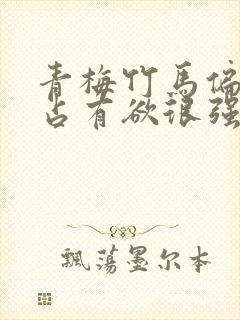 青梅竹马偏
占有欲很强
飘荡墨尔本